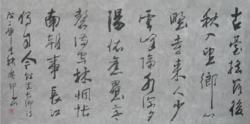 古臺摇落後
秋入望鄉心
野寺来人少
雲峰隔水深夕
陽依舊壘寒
磬滿空林惆悵
南朝事長江
獨至今